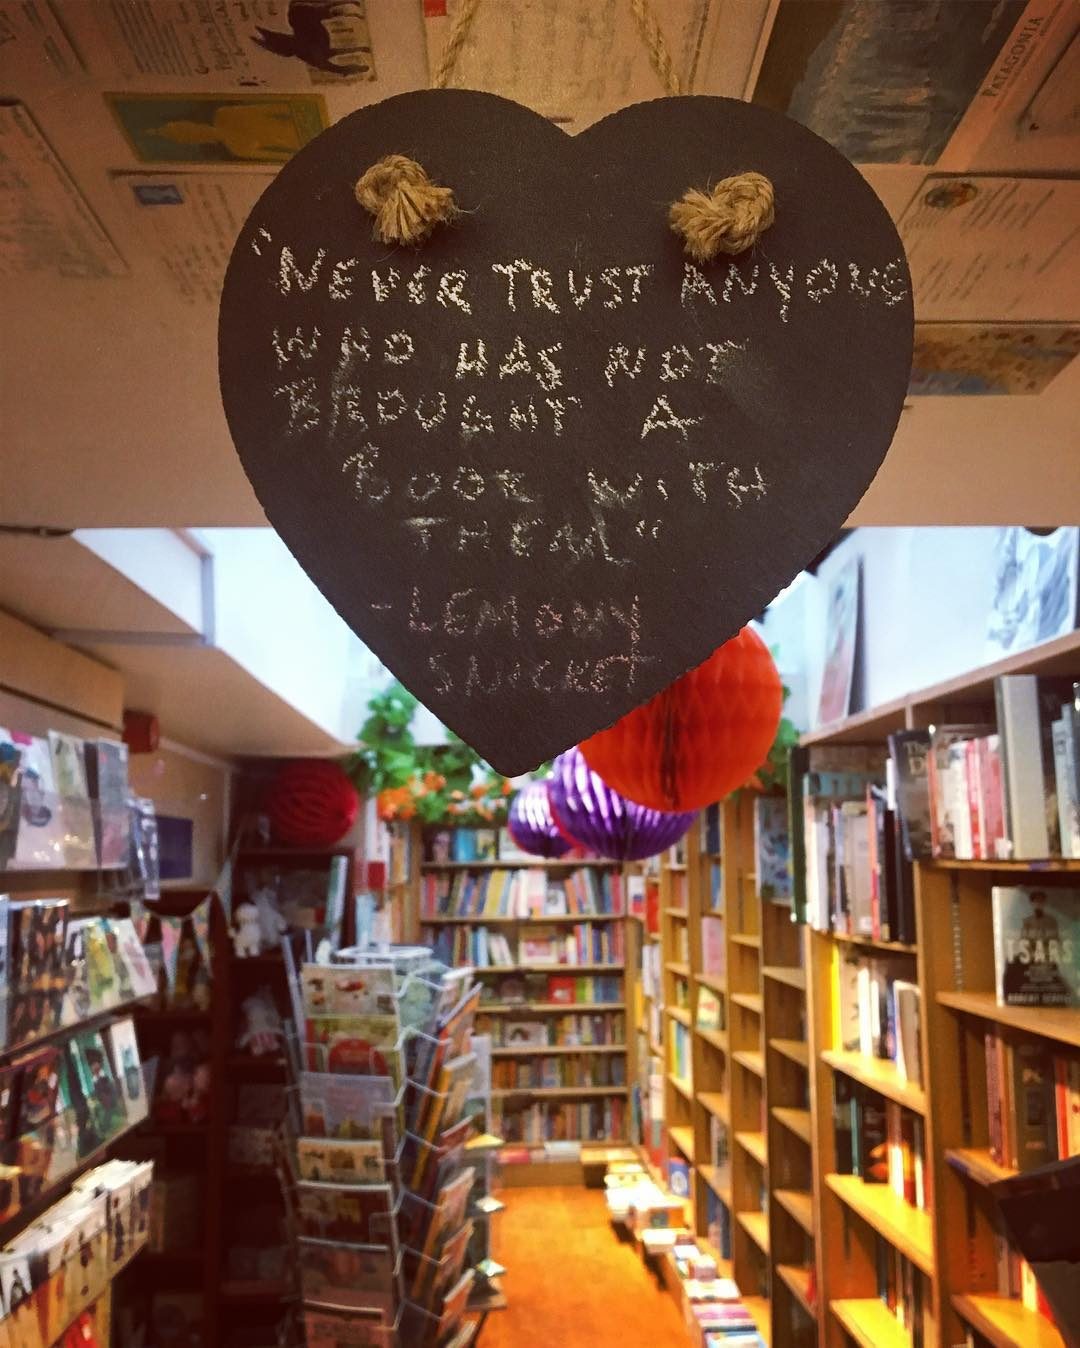 PATAGONIA
"NEVER TRUST ANYONE
WHO HAS NOT
BROUGHT A
BOOK WITH
THEM"
-LEMONY
SNICKET
TSARS